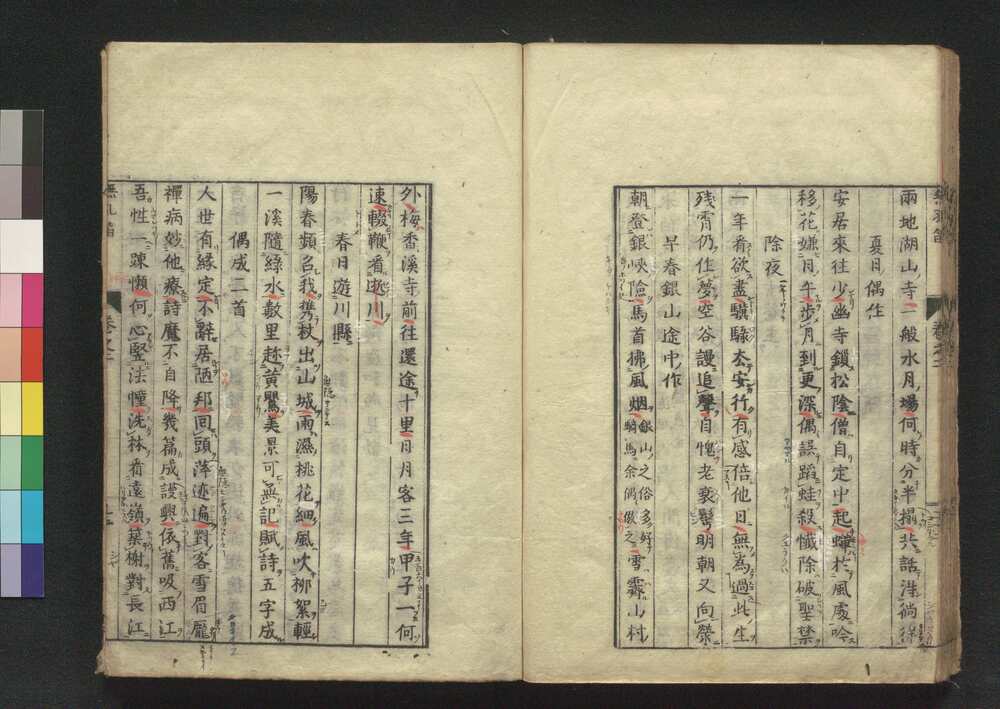 兩地湖山寺一般水月場何時分半榻共話澁徜徉
夏日偶作
安居來往少幽寺鎖松陰僧自定中起蟬於風處吟
移花嫌月午步月到更深偶誤蹈蛙殺懺除破聖禁
除夜
一年看欲盡驥騄太安行有感倍他日無為過此生
殘宵仍住夢空谷謾追聲自愧老衰鬢明朝又向榮
早春銀山途中作
朝登銀峽險馬首拂風烟銀山之俗多好騎馬余偶傚之雪霽山村
外梅香溪寺前往還途十里日月客三年甲子一何
速輟鞭看逝川
春日遊川縣
陽春頻召我携杖出山城雨濕桃花細風吹柳絮輕
一溪隨綠水數里趂黃鸎美景可無記賦詩五字成
偶成二首
人世有緣定不辭居陋邦回頭萍迹遍對客雪眉龐
禪病妙他療詩魔不自降幾篇成謾興依舊吸西江
吾性一踈懶何心竪法幢洗秋看遠嶺築榭對長江
無孔笛
卷之二